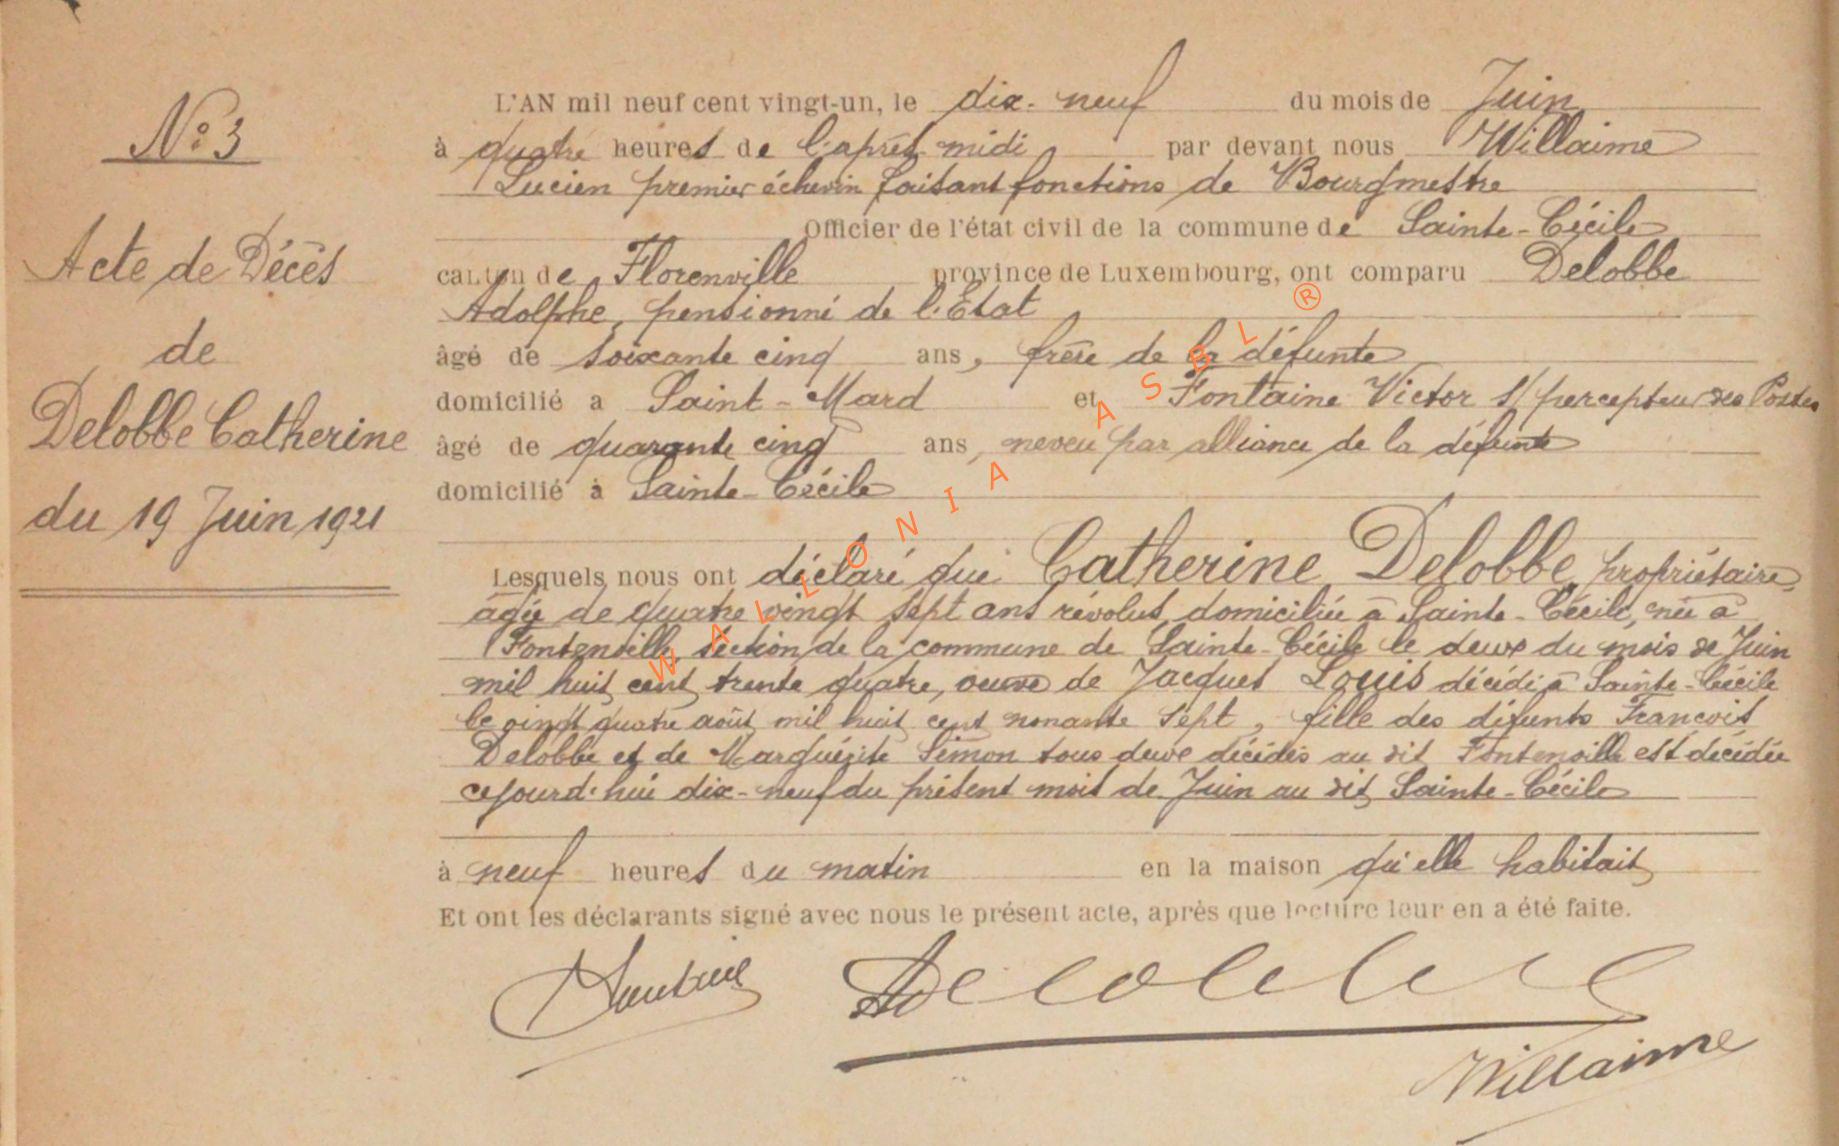 N° 3
Acte de Décès
de
Delobbe Catherine
du 19 Juin 1921
L'AN mil neuf cent vingt-un, le dix-neuf du mois de Juin
à quatre heures de l'après-midi par devant nous Willaime
Lucien premier échevin faisant fonctions de Bourgmestre
Officier de l'état civil de la commune de Sainte-Cécile
canton de Florenville province de Luxembourg, ont comparu Delobbe
Adolphe, pensionné de l'Etat
âgé de soixante cinq ans, frère de la défunte
domicilié a Saint-Mard et Fontaine Victor s/percepteur des Postes
âgé de quarante cinq ans, neveu par alliance de la défunte
domicilié à Sainte-Cécile
Lesquels nous ont déclaré que Catherine Delobbe, propriétaire,
âgée de quatre vingt sept ans révolus, domiciliée à Sainte-Cécile, née à
Fontenoille section de la commune de Sainte-Cécile le deux du mois de Juin
mil huit cent trente quatre, veuve de Jacques Louis décédé à Sainte-Cécile
le vingt quatre août mil huit cent nonante sept, fille des défunts François
Delobbe et de Marguérite Simon tous deux décédés au dit Fontenoille est décédée
cejourd'hui dix-neuf du présent mois de Juin au dit Sainte-Cécile
à neuf heures du matin en la maison qu'elle habitait
Et ont les déclarants signé avec nous le présent acte, après que lecture leur en a été faite.
Fontaine ADelobbe
Willaime
WALLONIA ASBL ®